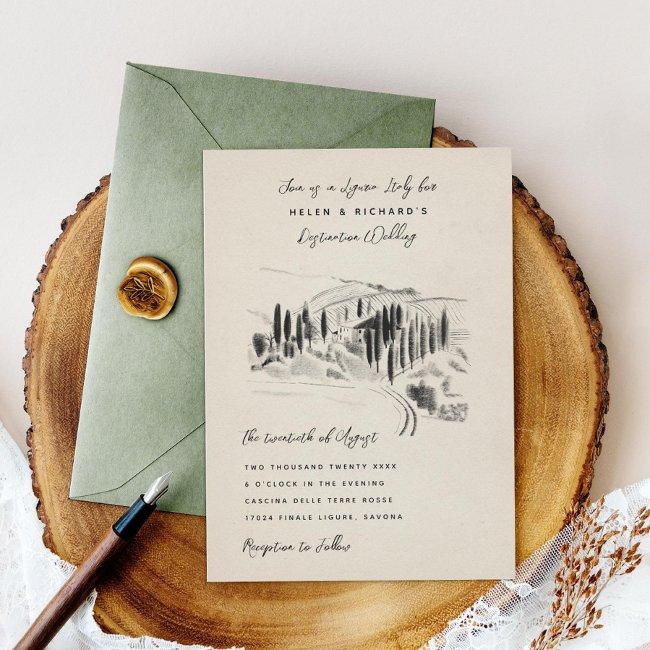 Join us in Liguria Italy for
HELEN & RICHARD'S
Destination Wedding
The twentieth of August
TWO THOUSAND TWENTY XXXX
6 O'CLOCK IN THE EVENING
CASCINA DELLE TERRE ROSSE
17024 FINALE LIGURE, SAVONA
Reception to Follow